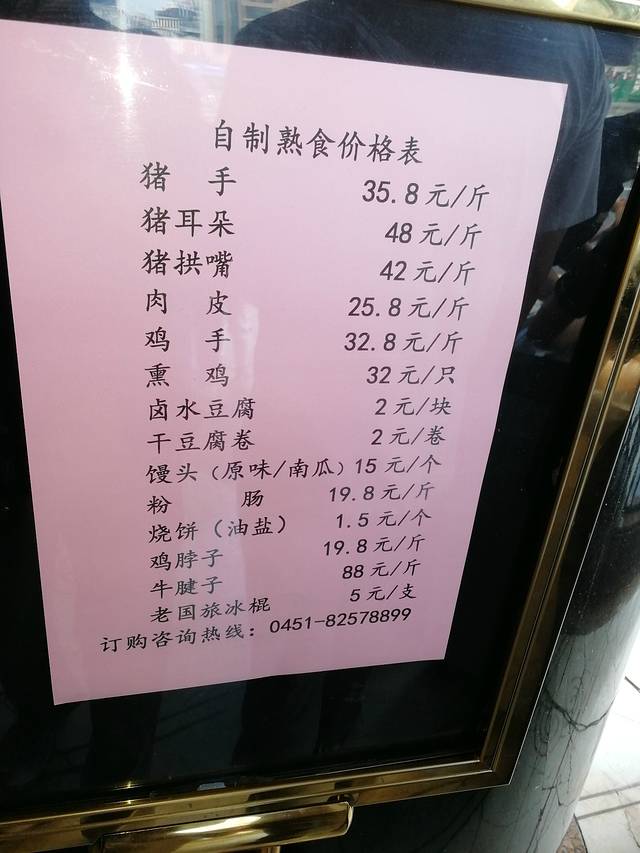 自制熟食价格表
猪 手 35.8元/斤
猪耳朵 48元/斤
猪拱嘴 42元/斤
肉 皮 25.8元/斤
鸡 手 32.8元/斤
熏 鸡 32元/只
卤水豆腐 2元/块
干豆腐卷 2元/卷
馒头（原味/南瓜）15元/个
粉 肠 19.8元/斤
烧饼（油盐） 1.5元/个
鸡脖子 19.8元/斤
牛腱子 88元/斤
老国旅冰棍 5元/支
订购咨询热线：0451-82578899